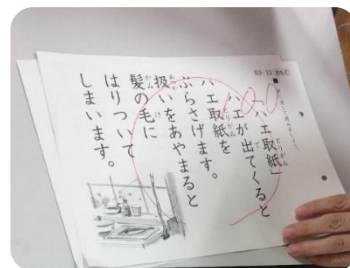 「ハエ取紙」
ハエが出てくると
ハエ取紙を
ぶらさげます。
扱いをあやまると
髪の毛に
はりついて
しまいます。